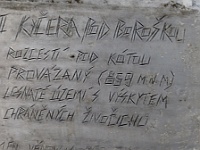 KYČERA POD BOROŠKOU
ROZCESTÍ POD KÓTOU
PROVÁZANÝ (859 M.N.M)
LESNATÉ ÚZEMÍ S VÝSKYTEM
CHRÁNĚNÝCH ŽIVOČICHŮ